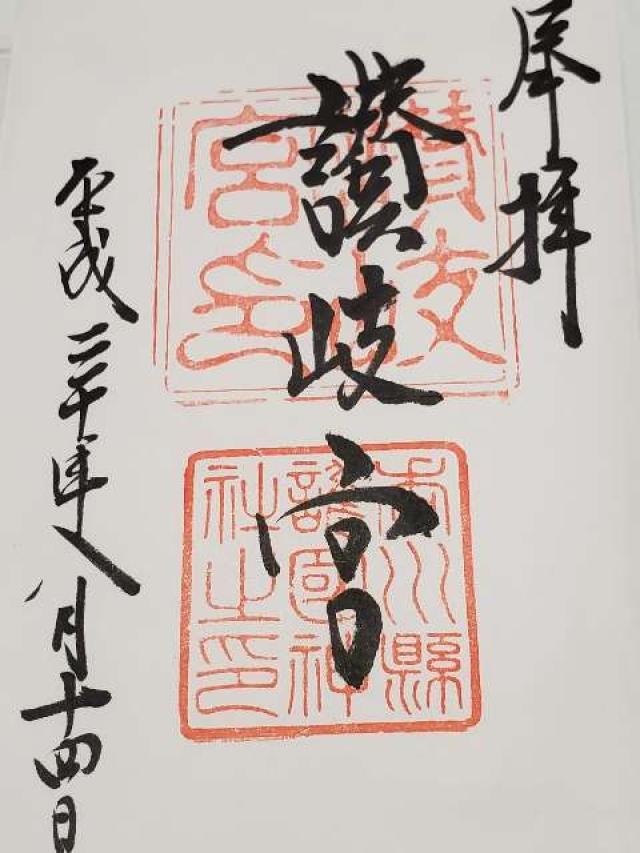 奉拝
讃岐宮
平成三十年八月十四日
讃岐
宮印
香川縣
護國神
社之印